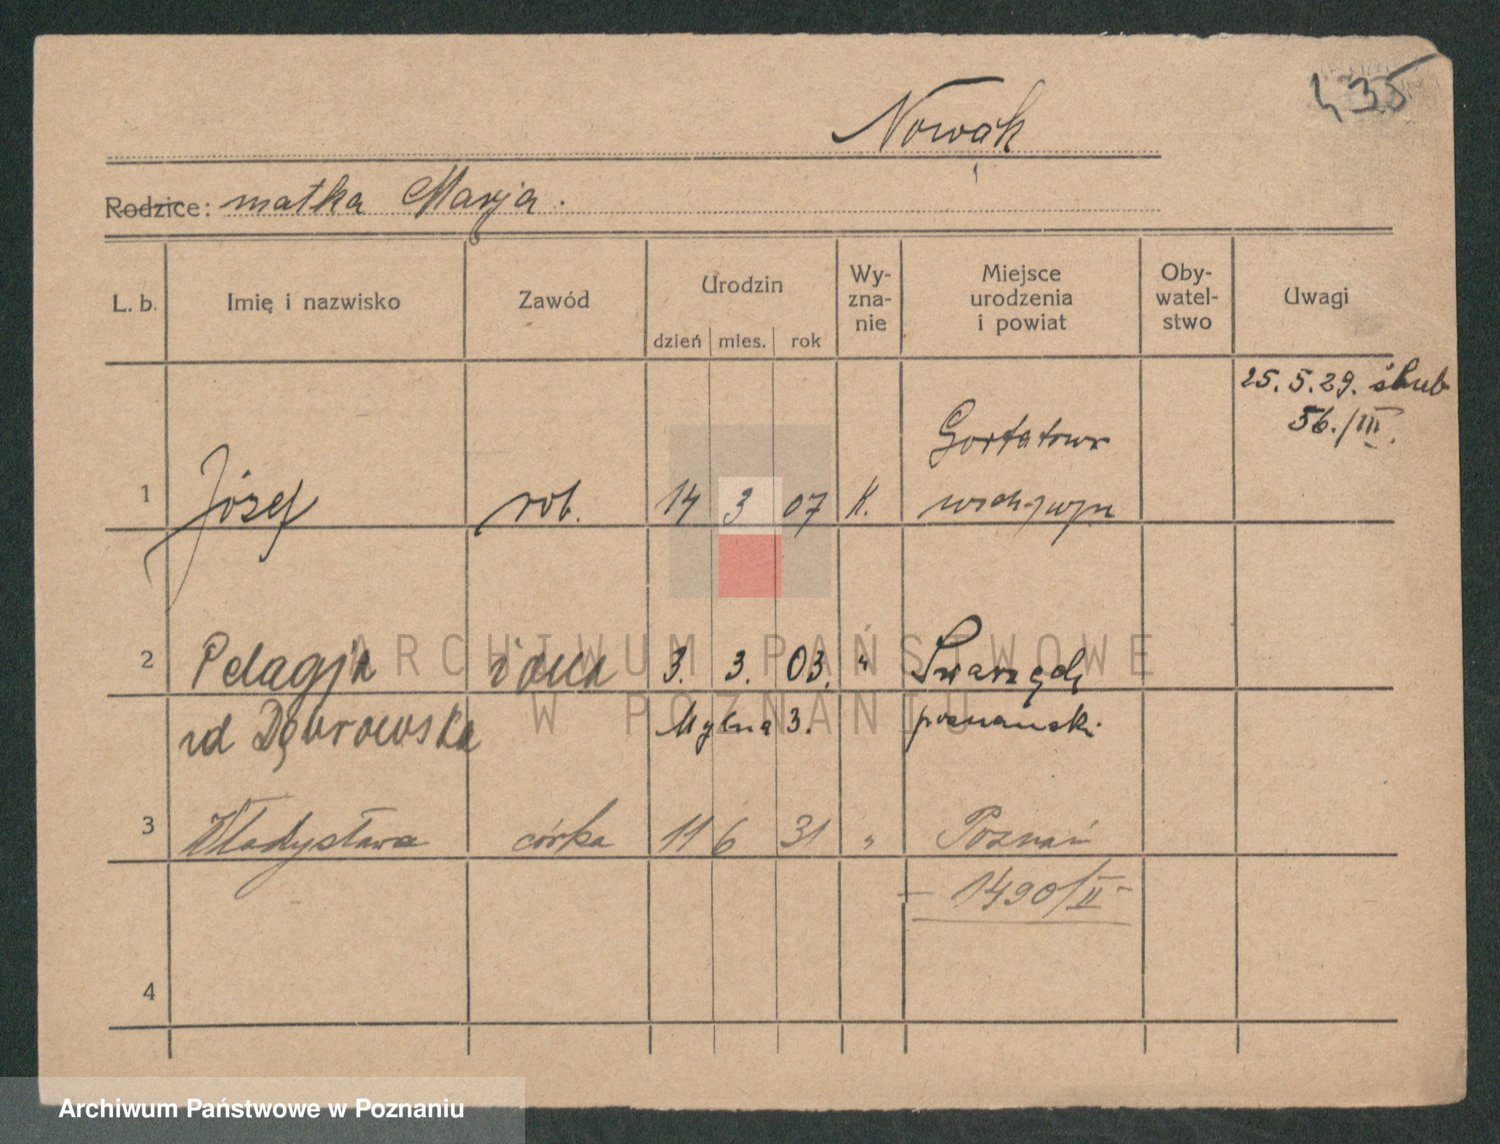 435
Nowak
Rodzice: matka Marja.
L. b. Imię i nazwisko Zawód Urodzin dzień mies. rok Wyznanie Miejsce urodzenia i powiat Obywatelstwo Uwagi
25. 5. 29. ślub
56./III.
Gortatowo
1 Józef rob. 14 3 07 K.
2 Pelagja żona 3. 3. 03. " Swarzędz
zd Dąbrowska Mylna 3. poznański.
3 Władysława córka 11 6 31 " Poznań
- 1490/II -
4
ARCHIWUM PAŃSTWOWE
W POZNANIU
Archiwum Państwowe w Poznaniu